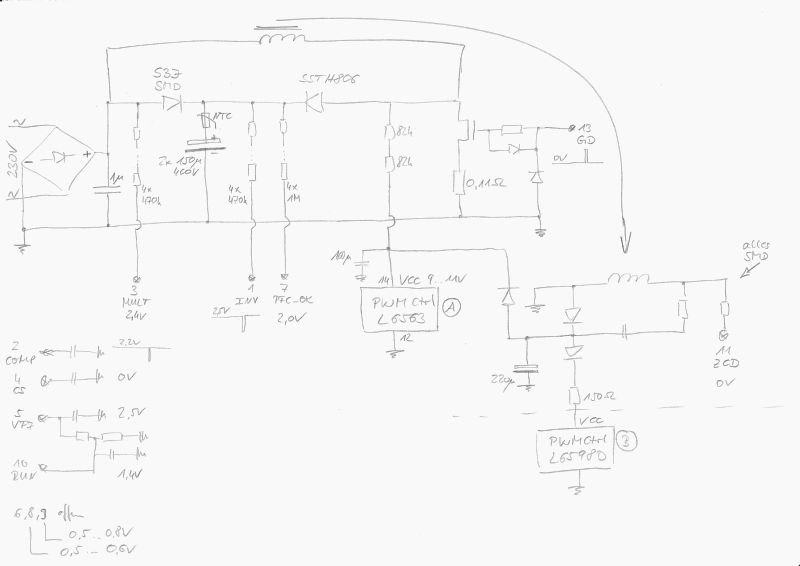 S3J
SMD
STTH806
NTC
82k
82k
13
GD
0V
230V
1µ
2x 150µ
400V
4x
470k
4x
470k
4x
1M
0,11Ω
alles
SMD
3
MULT
2,4V
1
INV
2,5V
7
PFC_OK
2,0V
100µ
14 VCC 9...11V
PWM Ctrl
L6563
A
12
11
ZCD
0V
220µ
150Ω
VCC
PWM Ctrl
L6598D
B
2
COMP
2,2V
4
CS
0V
5
VFF
2,5V
10
RUN
1,4V
6,8,9 offen
0,5...0,8V
0,5...0,6V